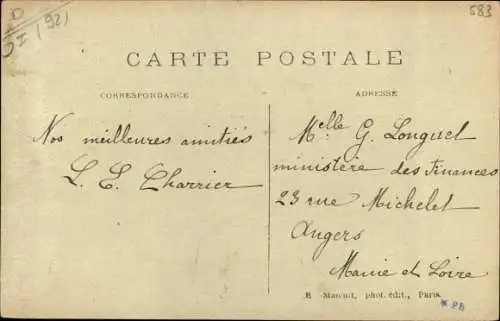 583
CARTE POSTALE
CORRESPONDANCE
ADRESSE
Nos meilleures amitiés
L. E. Charrier
Melle G. Longuel
ministère des Finances
23 rue Michelet
Angers
Maine et Loire
phot. édit., Paris